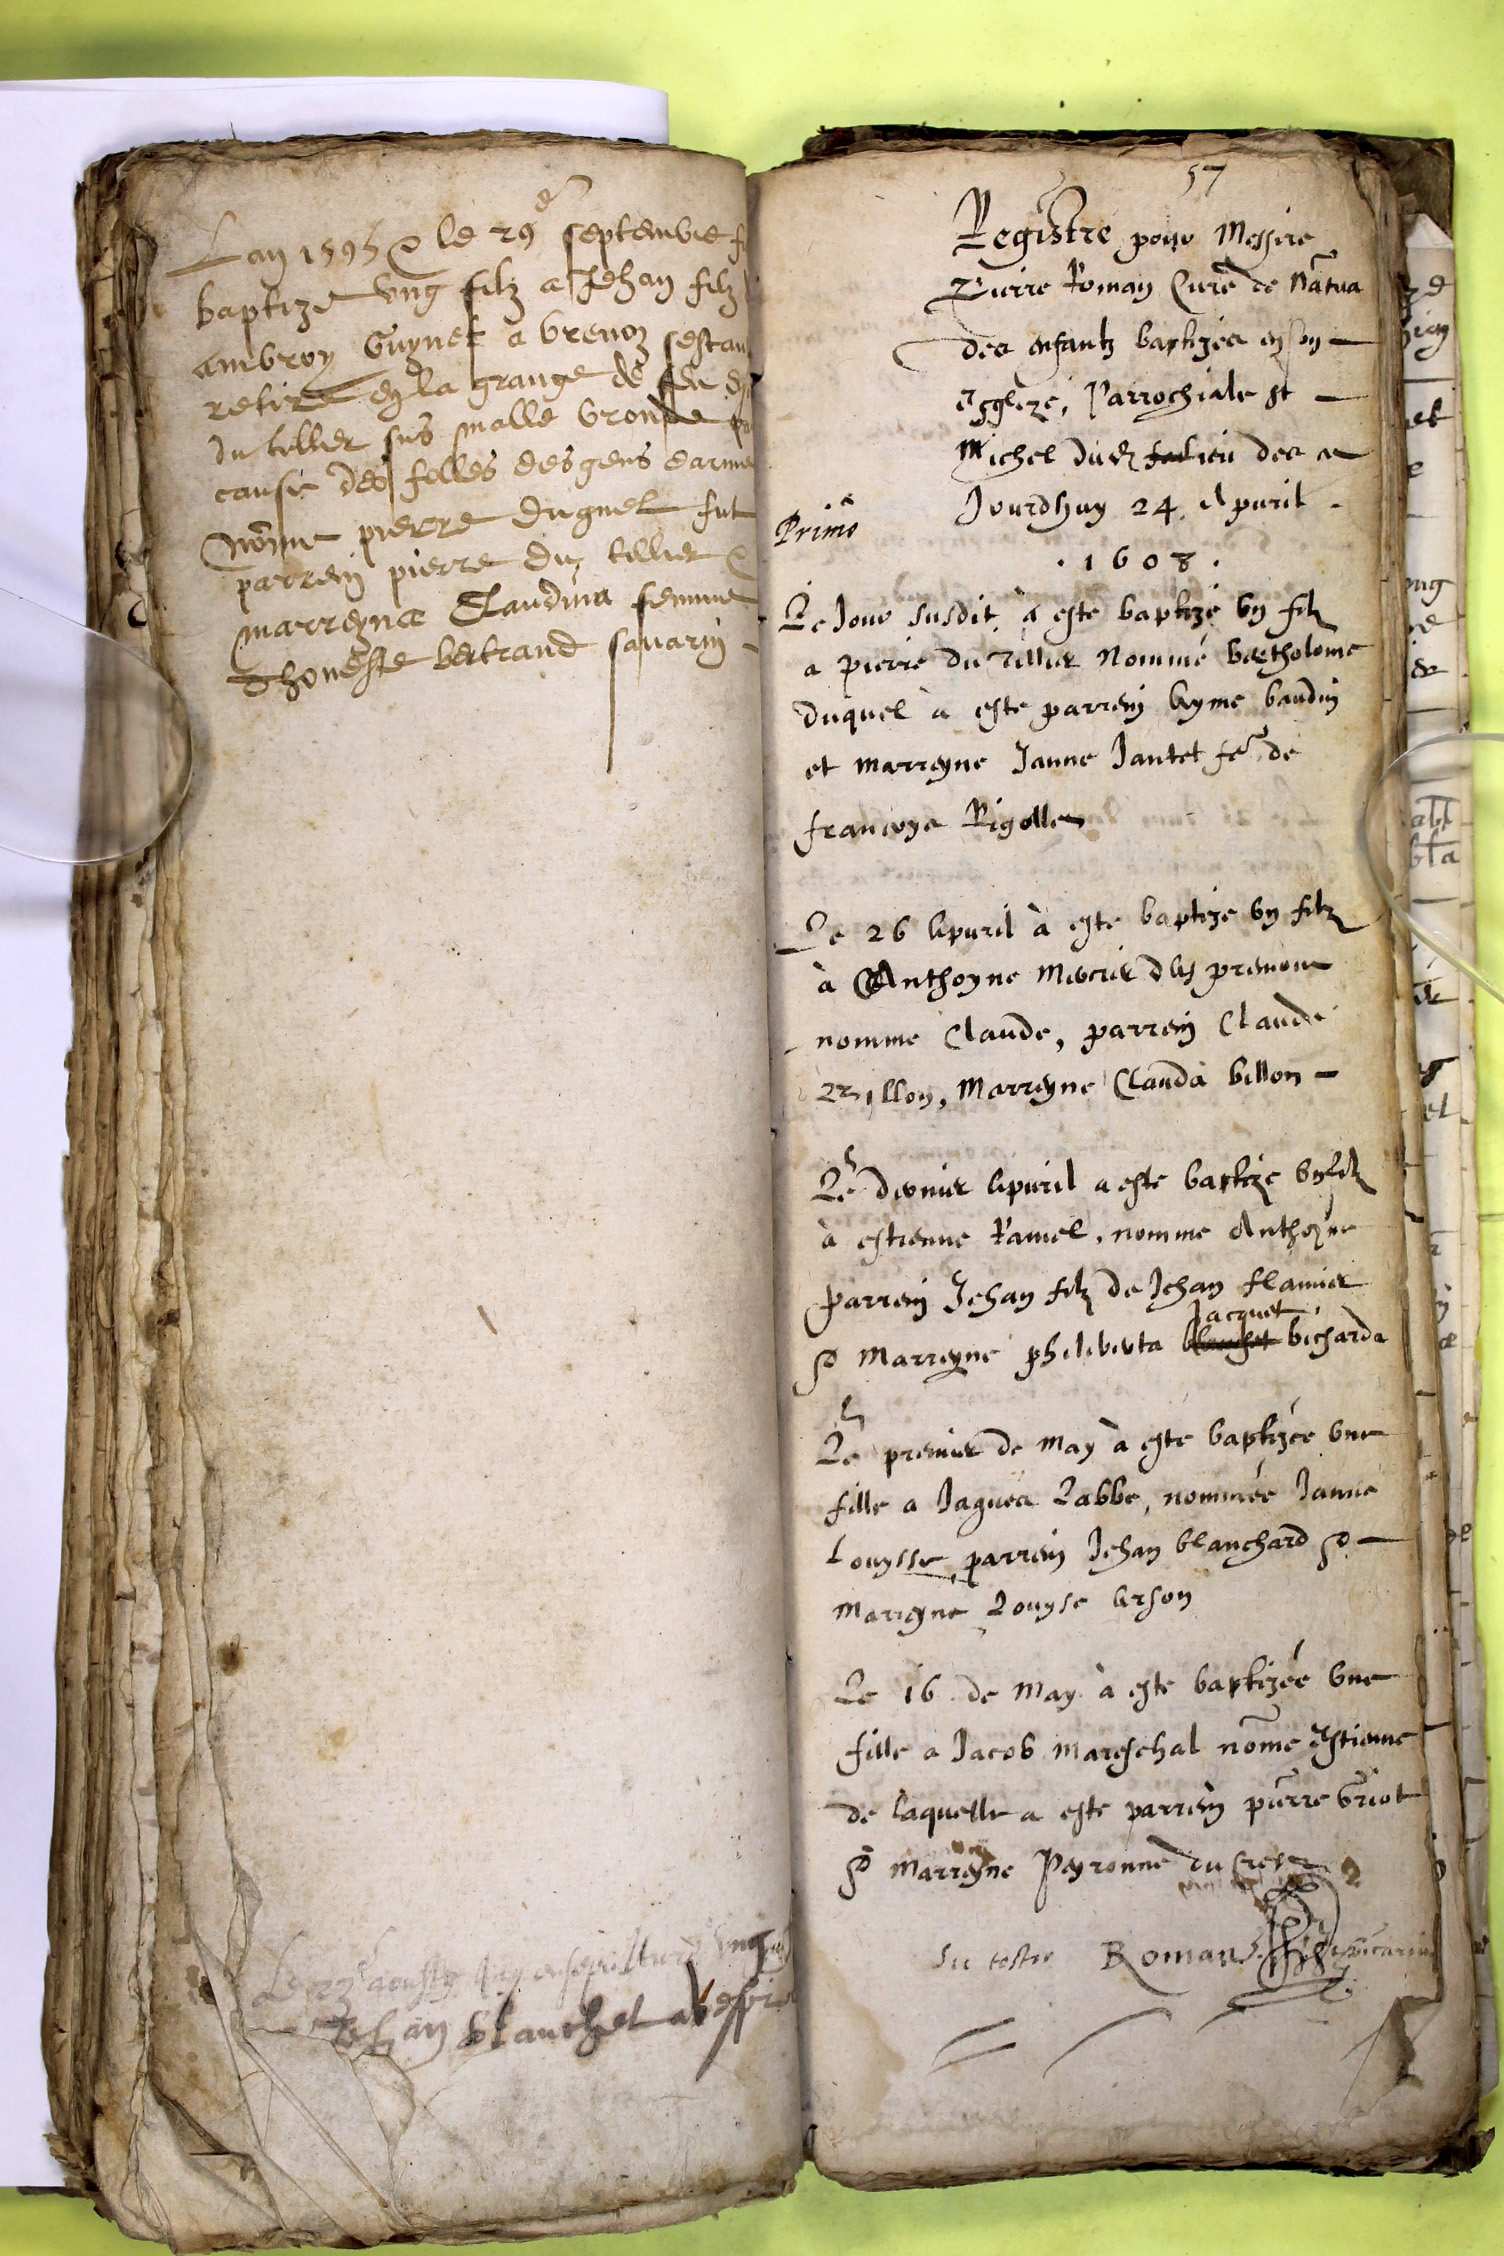 Lan 1595 & le 29e septembre f
baptize ung filz a Jehan filz
ambroy Guynet a brenoz sestan
retiré en la grange de feu
du tillet sus malle bronde
causse des folles des gens darme
nomme pierre duquel fut
parrein pierre du tillet &
marreyne Claudina femme
dhoneste bertrand savarin
Jehan blanchet
57
Registre pour Messire
Pierre Roman Curé de Nãtua
des enfantz baptizés en son
esglize Parrochiale St
Michel dud lieu des ce
Jourdhuy 24 Apuril
Primo
1608
Le Jour susdit à este baptizé un filz
a pierre du Tillier Nommé bartholome
duquel à este parrein Ayme baudin
et marreyne Janne Jantet fe de
francoys Rigollen
Le 26 Apuril à este baptize un filz
à Anthoyne Mercier
nomme Claude, parrein Claude
Millon, Marreyne Clauda billon
Le dernier Apuril a este baptize un filz
à estienne Raviel, nomme Anthoyne
parrein Jehan filz de Jehan flamier
& Marreyne philiberta Jacquet bicharda
Le premier de May à este baptizée une
fille a Jaques Labbe, nommée Janne
Louysse parrein Jehan blanchard &
Marreyne Louyse Arson
Le 16 de May à este baptizée une
fille a Jacob Mareschal nomẽ Estienne
de laquelle a este parrein pierre Griot
& Marreyne Peyronne du Crest
Roman